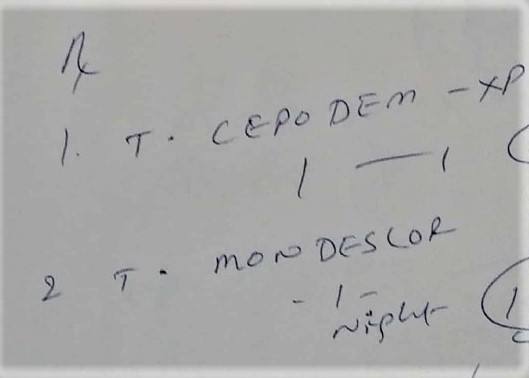 Rx
1. T. CEPODEM - XP
1 — 1
2 T. MONDESLOR
- 1 -
Night